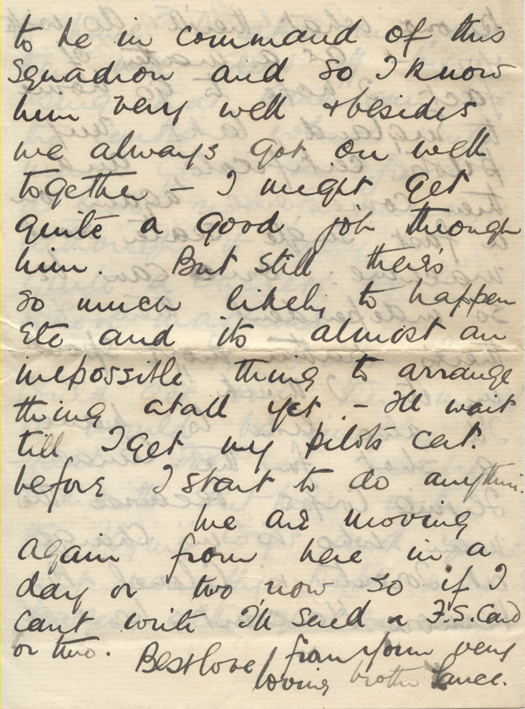 to be in command of this
Squadron and so I know
him very well & besides
we always got on well
together – I might get
quite a good job through
him. But still there's
so much likely to happen
etc and its almost an
impossible thing to arrange
thing atall yet. – I'll wait
till I get my pilots cert.
before I start to do anythin.
We are moving
again from here in a
day or two now so if I
cant write I'll send a F.S. Card
or two. Best love from your very
loving brother Lance.